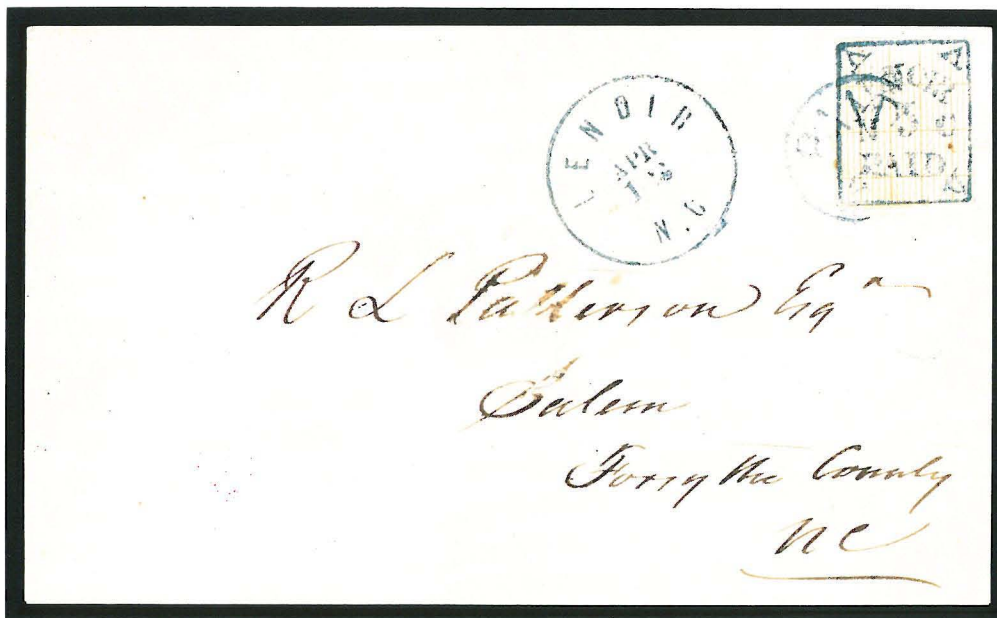 LENOIR
APR
12
N.C
PAID
5
PAID
R L Patterson Esqr
Salem
Forsythe County
NC